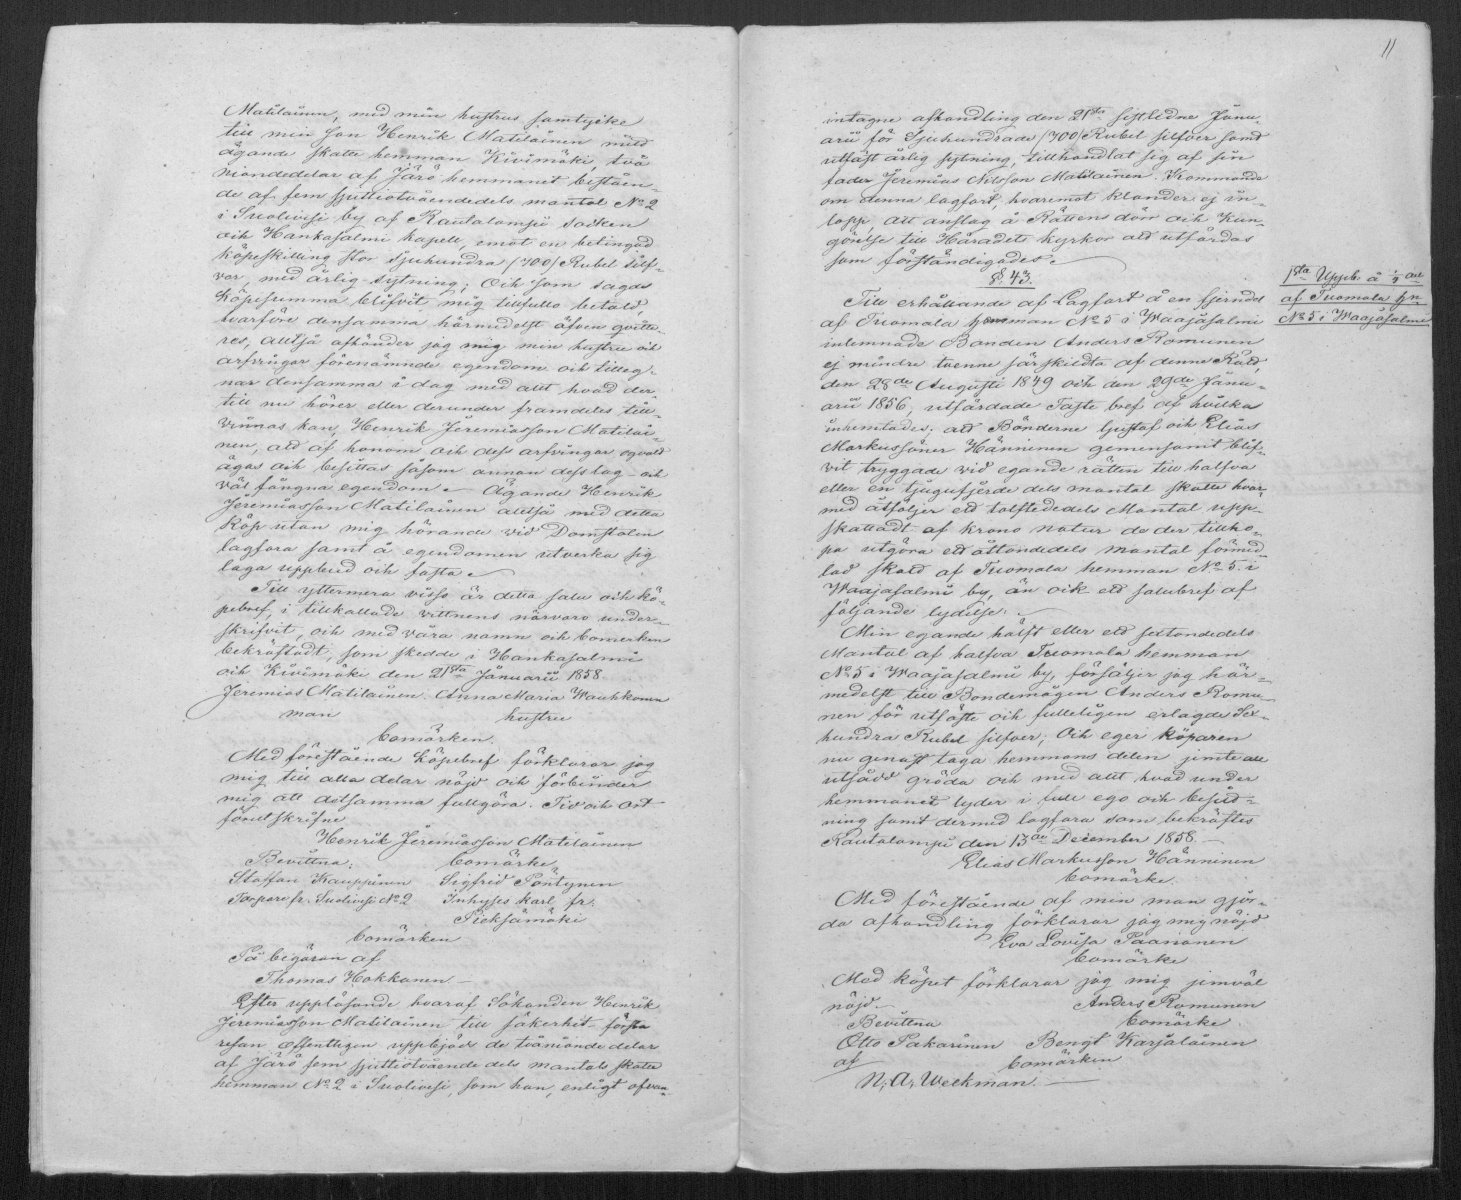 Matilainen, med min hustrus samtycke
till min son Henrik Matilainen mitt
ägande skatte hemman Kivimäki, två
niondedelar af Järö hemmanet bestäen-
de af fem sjuttiotvåendedels mantal No 2
i Suolivesi by af Rautalampi socken
och Hankasalmi kapell, emot en betingad
köpeskilling stor Sjuhundra (700) Rubel silf-
ver, med årlig sytning; Och som sagde
Köpesumma blifvit mig tillfullo betald,
hvarföre densamma härmedelst äfven qvitte-
res, alltså afhänder jag mig min hustru och
arfvingar förenämnde egendom och tilleg-
nar densamma i dag med allt hvad der
till nu hörer eller derunder framdeles till-
vinnas kan, Henrik Jeremiasson Matilai-
nen, att af honom och dess arfvingar oqvald
ägas och besittas såsom annan dess lag- och
väl fångna egendom. Ägande Henrik
Jeremiasson Matilainen alltså med detta
Köp utan mig hörande vid Domstolen
lagfara samt å egendomen utverka sig
laga uppbud och fasta.
Till yttermera visso är detta salu och kö-
pebref, i tillkallade vittnens närvaro under-
skrifvit, och med våra namn och bomerken
bekräftadt, som skedde i Hankasalmi
och Kivimäki den 21sta Januarii 1858.
Jeremias Matilainen Anna Maria Wauhkonen
man hustru
bomärken.
Med förestående köpebref förklarar jag
mig till alla delar nöjd och förbinder
mig att detsamma fullgöra. Tid och ort
förutskrifne
Henrik Jeremiasson Matilainen
Bevittna: bomärke
Staffan Kauppinen Sigfrid Pöntynen
Torpare fr. Suolivesi No 2 Inhyses karl fr.
Pieksämäki
bomärken
På begäran af
Thomas Hokkanen
Efter uppläsande hvaraf Sökanden Henrik
Jeremiasson Matilainen till säkerhet första
resan offentligen uppbjöds de tvåniondedelar
af Järö fem sjuttiotvåendedels mantals skatte
hemman No 2 i Suolivesi, som han, enligt ofvan-
11
intagne afhandling den 21sta sistledne Janu-
arii för Sjuhundrade (700) Rubel silfver samt
utfäst årlig sytning, tillhandlat sig af sin
fader Jeremias Nilsson Matilainen. Kommande
om denna lagfart, hvaremot klander ej in-
lopp, att anslag å Rättens dörr och Kun-
görelse till Häradets kyrkor att utfärdas
som förständigades.
§. 43.
1sta Uppb. å 1/4 del
af Tuomala hn
No 5 i Waajasalmi
Till erhållande af Lagfart å en fjerndel
af Tuomala hemman No 5 i Waajasalmi
inlemnade Bonden Anders Romunen
ej mindre tvenne särskildta af denna Rätt,
den 28de Augusti 1849 och den 29de Janu-
arii 1856, utfärdade Faste bref af hvilka
inhemtades: att Bönderne Gustaf och Elias
Markussöner Hänninen gemensamt blif-
vit tryggade vid egande rätten till halfva
eller en tjugufjerde dels mantal skatte hvar-
med åtföljer ett tolftedels Mantal upp-
skattadt af krono natur de der tillho-
pa utgöra ett åttondedels mantal förmed-
lad skatt af Tuomala hemman No 5 i
Waajasalmi by, än ock ett salubref af
följande lydelse:
Min egande hälft eller ett sextondedels
Mantal af halfva Tuomala hemman
No 5 i Waajasalmi by, försäljer jag här-
medelst till Bondemågen Anders Romu-
nen för utfäste och fulleligen erlagde Sex-
hundra Rubel silfver; Och eger köparen
nu genast taga hemmans delen jemte all
utsådd gröda och med allt hvad under
hemmanet lyder i full ego och besitt-
ning samt dermed lagfara som bekräftes
Rautalampi den 13de December 1858.
Elias Markusson Hänninen
bomärke.
Med förestående af min man gjor-
da afhandling förklarar jag mig nöjd
Eva Lovisa Paananen
bomärke
Med köpet förklarar jag mig jemväl
nöjd. Anders Romunen
Bevittna bomärke
Otto Pakarinen Bengt Karjalainen
af bomärken
N. A. Weckman.